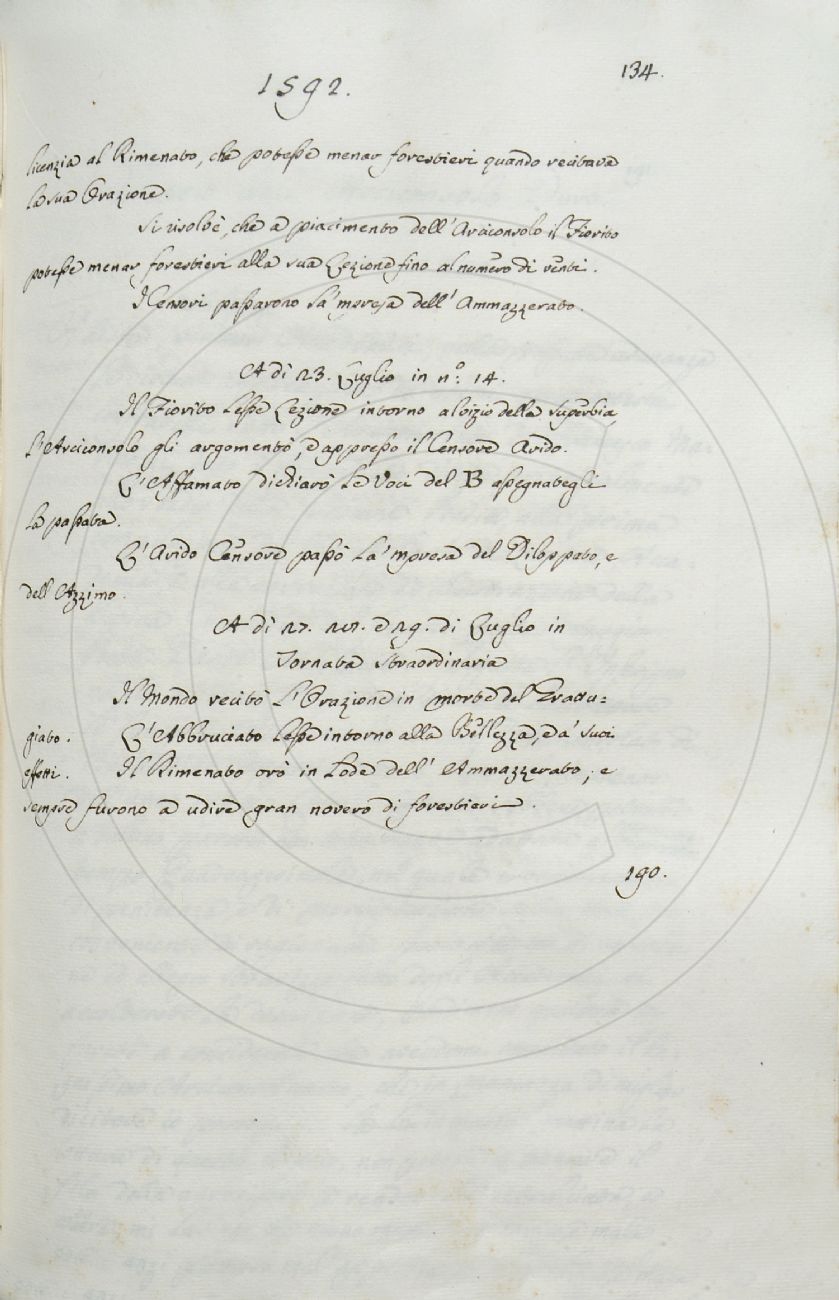 134.
1592.
licenzia al Rimenato, che potesse menar forestieri quando recitava
la sua Orazione.
Si risolvè, che a piacimento dell'Arciconsolo il Fiorito
potesse menar forestieri alla sua Lezione fino al numero di venti.
I Censori passarono la 'mpresa dell'Ammazzerato.
A dì 23. Luglio in n.º 14.
Il Fiorito lesse Lezione intorno al vizio della superbia,
l'Arciconsolo gli argomentò, e appresso il Censore Arido.
L'Affamato dichiarò le Voci del B assegnategli
la passata.
L'Arido Censore passò la 'mpresa del Diloppato, e
dell'Azzimo.
A dì 27. 28. e 29. di Luglio in
Tornata straordinaria
Il Mondo recitò l'Orazione in morte del Grattu=
giato. L'Abbruciato lesse intorno alla Bellezza, e a' suoi
effetti. Il Rimenato orò in lode dell'Ammazzerato; e
sempre furono a udire gran novero di forestieri.
190.